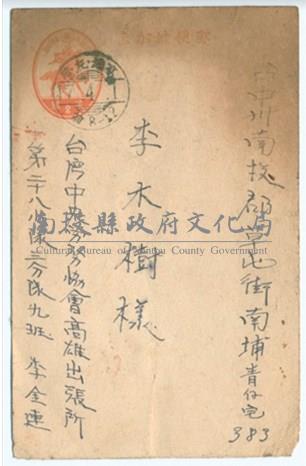 郵便はがき
台中州南投郡草屯街南埔青仔宅
383
李木樹様
台湾中央労務協會高雄出張所
第二十八小隊三分隊九班 李金連
南投縣政府文化局
Cultural Bureau of Nantou County Government